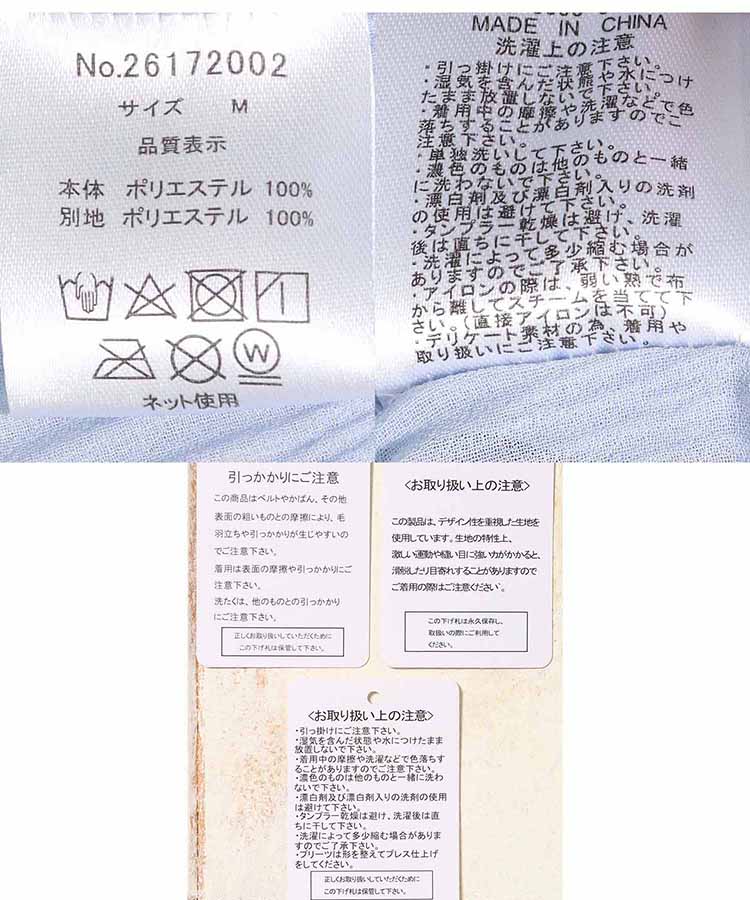 No.26172002
サイズ M
品質表示
本体 ポリエステル 100%
別地 ポリエステル 100%
W
ネット使用
MADE IN CHINA
洗濯上の注意
・引っ掛けにご注意下さい。
・湿気を含んだ状態や水につけ
たまま放置しないで下さい。
・着用中の摩擦や洗濯などで色
落ちすることがありますのでご
注意下さい。
・単独洗いして下さい。
・濃色のものは他のものと一緒
に洗わないで下さい。
・漂白剤及び漂白剤入りの洗剤
の使用は避けて下さい。
・タンブラー乾燥は避け、洗濯
後は直ちに干して下さい。
・洗濯によって多少縮む場合が
ありますのでご了承下さい。
・アイロンの際は、弱い熱で布
から離してスチームを当てて下
さい。(直接アイロンは不可)
・デリケート素材の為、着用や
取り扱いにご注意下さい。
引っかかりにご注意
この商品はベルトやかばん、その他
表面の粗いものとの摩擦により、毛
羽立ちや引っかかりが生じやすいの
でご注意下さい。
着用は表面の摩擦や引っかかりにご
注意下さい。
洗たくは、他のものとの引っかかり
にご注意下さい。
正しくお取り扱いしていただくために
この下げ札は保管して下さい。
<お取り扱い上の注意>
この製品は、デザイン性を重視した生地を
使用しています。生地の特性上、
激しい運動や縫い目に強い力がかかると、
滑脱したり目寄れすることがありますので
ご着用の際はご注意ください。
この下げ札は永久保存し、
取扱いの際にご利用して
ください。
<お取り扱い上の注意>
・引っ掛けにご注意下さい。
・湿気を含んだ状態や水につけたまま
放置しないで下さい。
・着用中の摩擦や洗濯などで色落ちす
ることがありますのでご注意下さい。
・濃色のものは他のものと一緒に洗わ
ないで下さい。
・漂白剤及び漂白剤入りの洗剤の使用
は避けて下さい。
・タンブラー乾燥は避け、洗濯後は直
ちに干して下さい。
・洗濯によって多少縮む場合がありま
すのでご了承下さい。
・プリーツは形を整えてプレス仕上げ
をしてください。
正しくお取り扱いしていただくために
この下げ札は保管して下さい。